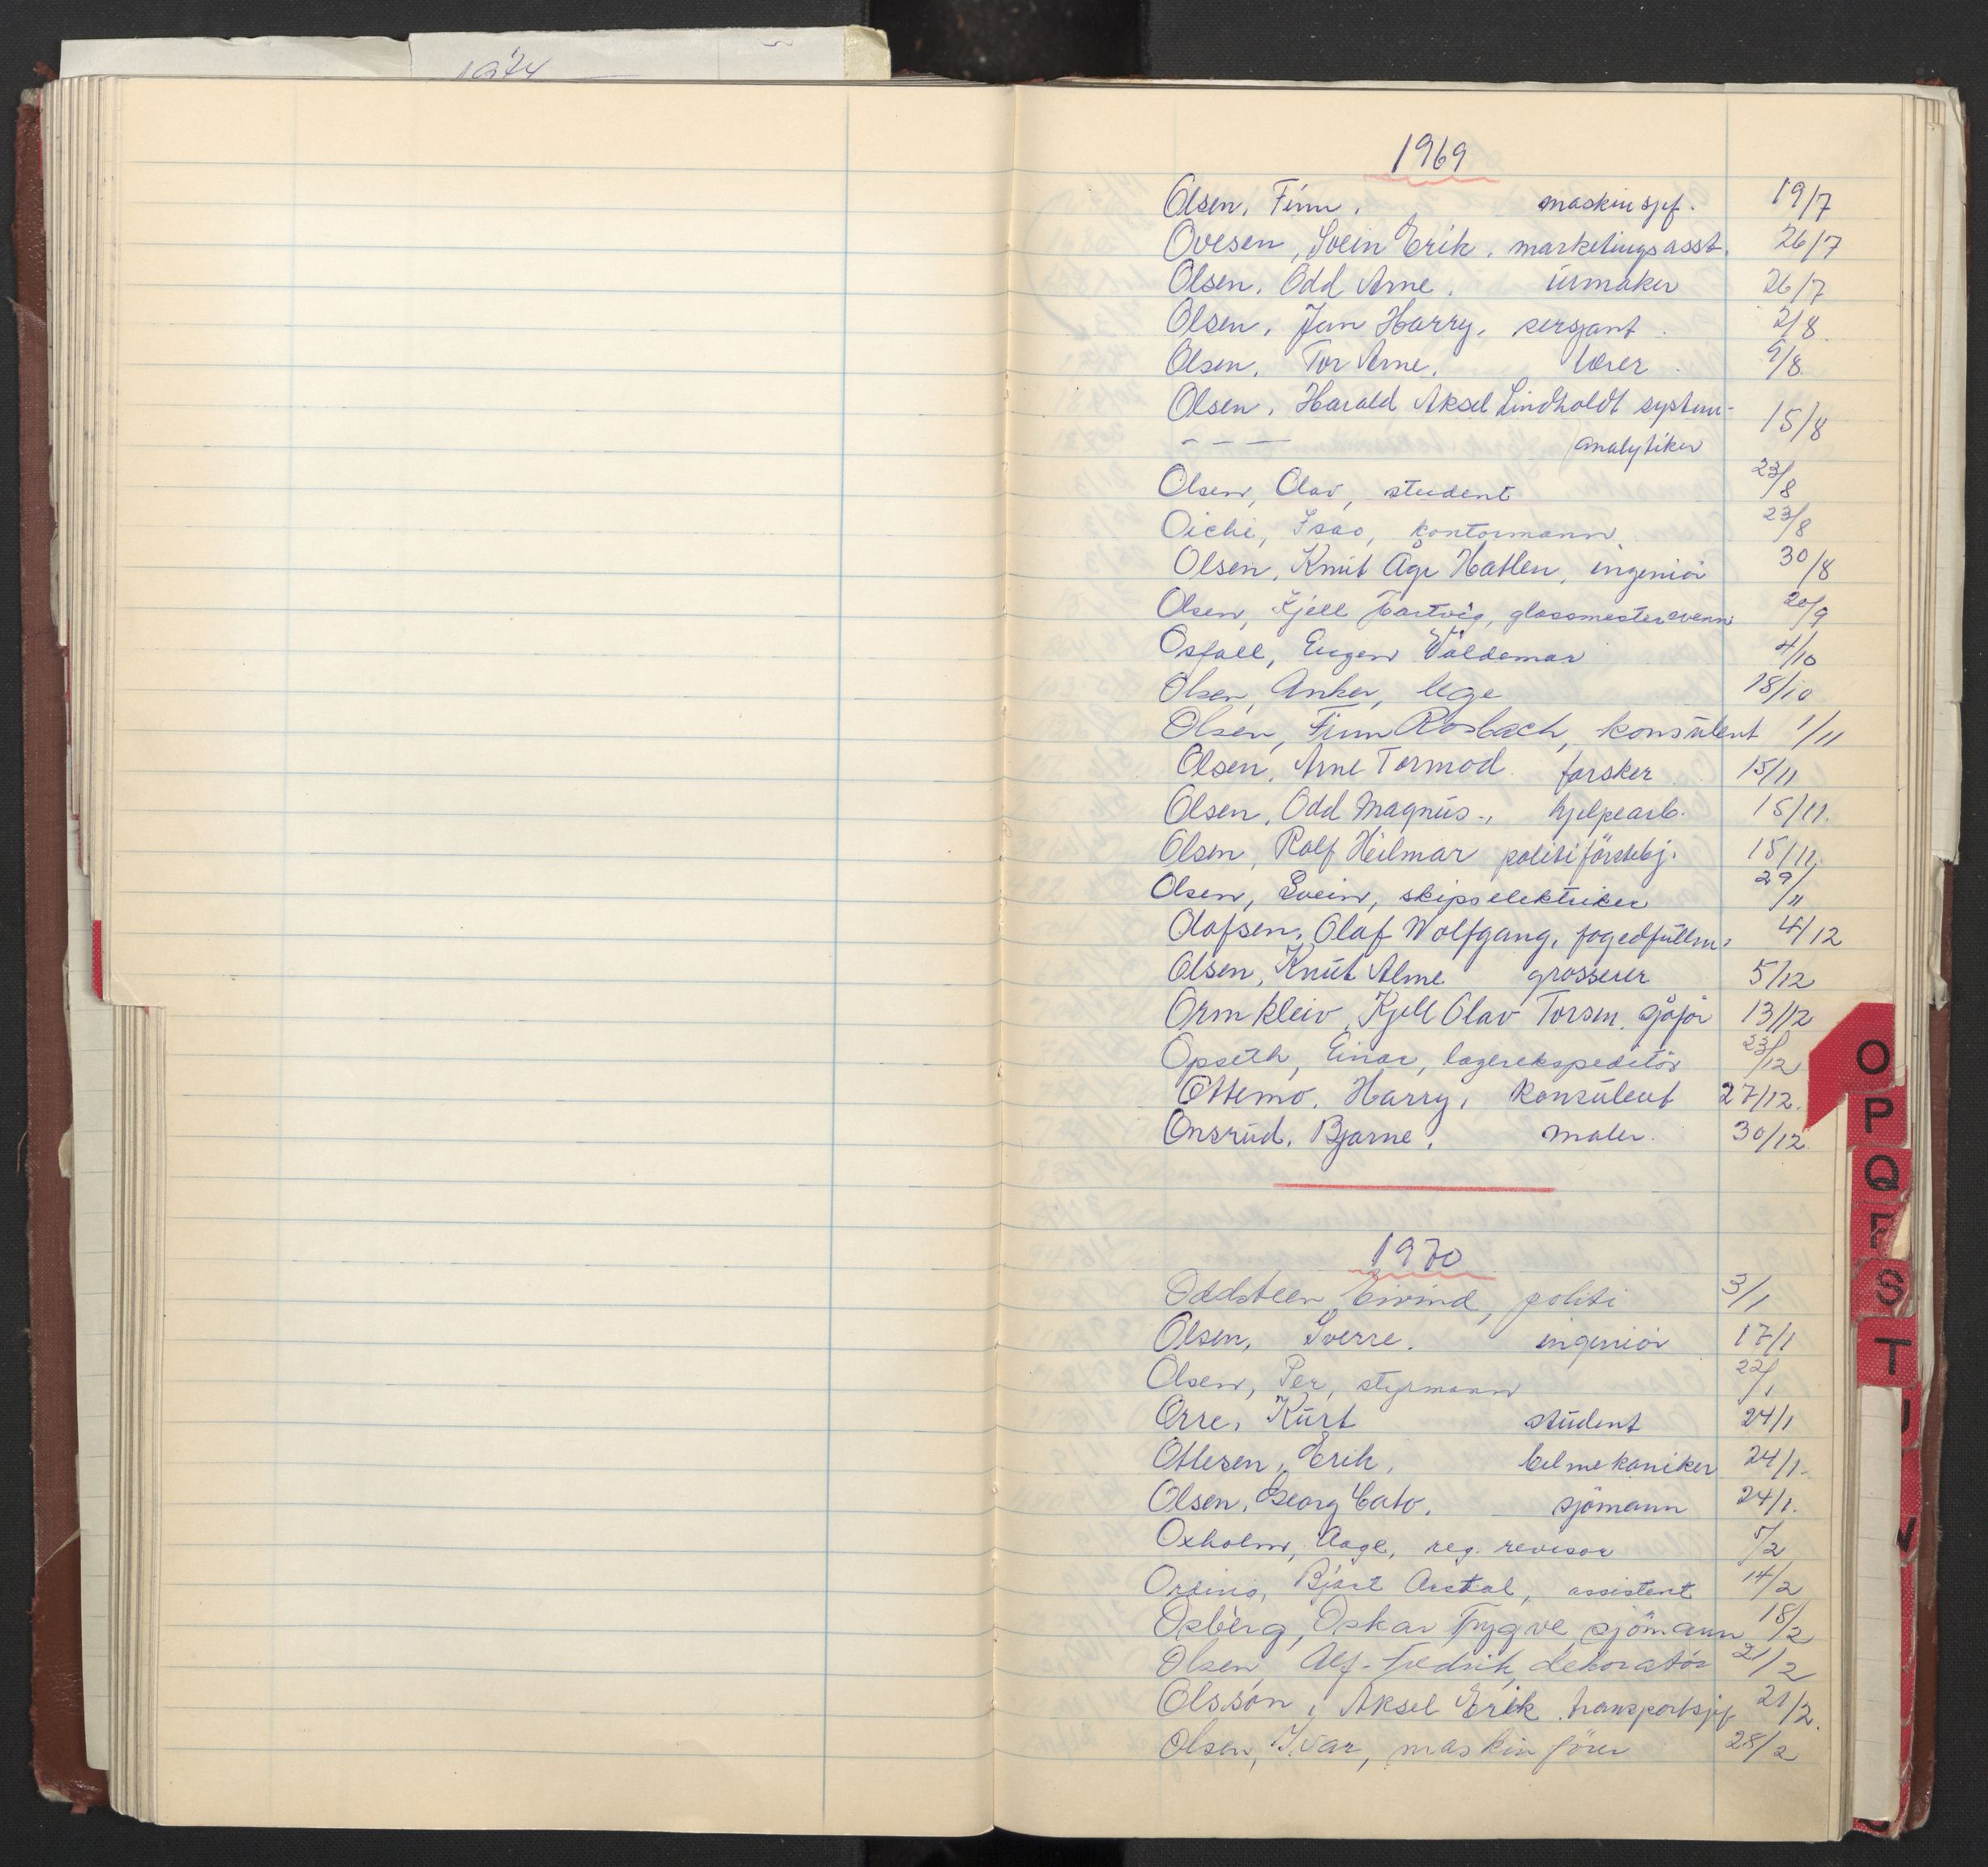 1974
1969
Olsen, Finn, maskinsjef. 19/7
Ovesen, Svein Erik, marketingsasst. 26/7
Olsen, Odd Arne, urmaker 26/7
Olsen, Jan Harry, sersjant 2/8
Olsen, Tor Arne, lærer 9/8
Olsen, Harald Aksel Lindholdt system- 15/8
- - - analytiker
Olsen, Olav, student 23/8
Oichi, Isao, kontormann 23/8
Olsen, Knut Åge Hatlen, ingeniør 30/8
Olsen, Kjell Hartvig, glassmestersvenn 20/9
Osfall, Eugen Waldemar 4/10
Olsen, Anker, lege 18/10
Olsen, Finn Rosbach, konsulent 1/11
Olsen, Arne Tormod forsker 15/11
Olsen, Odd Magnus, hjelpearb. 15/11.
Olsen, Rolf Heilmar politiförstebj. 15/11.
Olsen, Svein, skipselektriker 29/11
Olafsen, Olaf Wolfgang, fogedfullm. 4/12
Olsen, Knut Alme grosserer 5/12
Ormkleiv, Kjell Olav Torsen, sjåfør 13/12
Opseth, Einar, lagerekspeditör 23/12
Ottemo, Harry, konsulent 27/12.
Onsrud, Bjarne, maler 30/12.
1970
Oddsteen, Eivind, politi 3/1
Olsen, Sverre. ingeniør 17/1
Olsen, Per, styrmann 22/1
Orre, Kurt student 24/1
Ottesen, Erik, bilmekaniker 24/1.
Olsen, Georg Cato, sjömann 24/1.
Oxholm, Aage, reg. revisor 5/2
Bjart assistent 14/2
Osberg, Oskar Trygve, sjömann 18/2
Olsen, Alf-Fredrik, dekoratør 21/2
Olsson, Aksel Erik, transportsjef 21/2.
Olsen, Ivar, maskinförer 28/2
O
P
Q
R
S
T
U
V